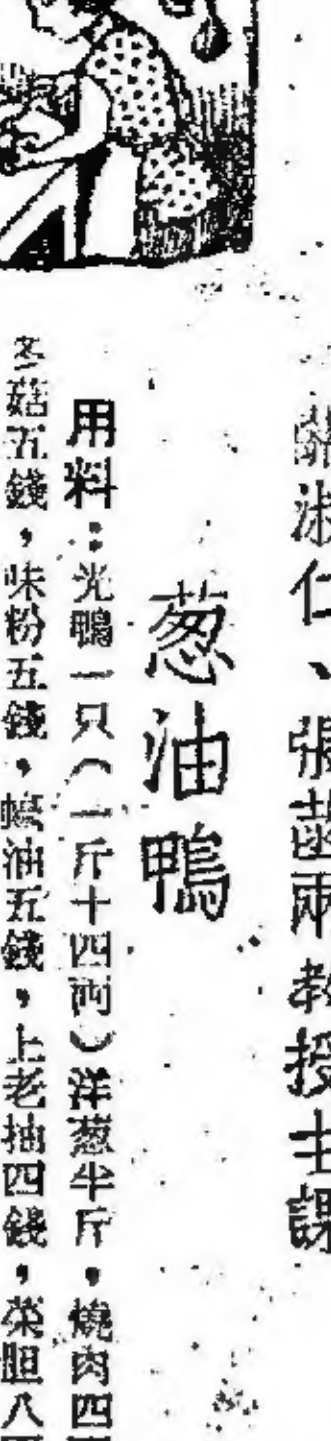 淑仁、張喆兩教授主課
葱油鴨
用料：光鴨一只（一斤十四両）洋葱半斤，燒肉四
冬菇五錢，味粉五錢，蠔油五錢，上老抽四錢，菜胆八